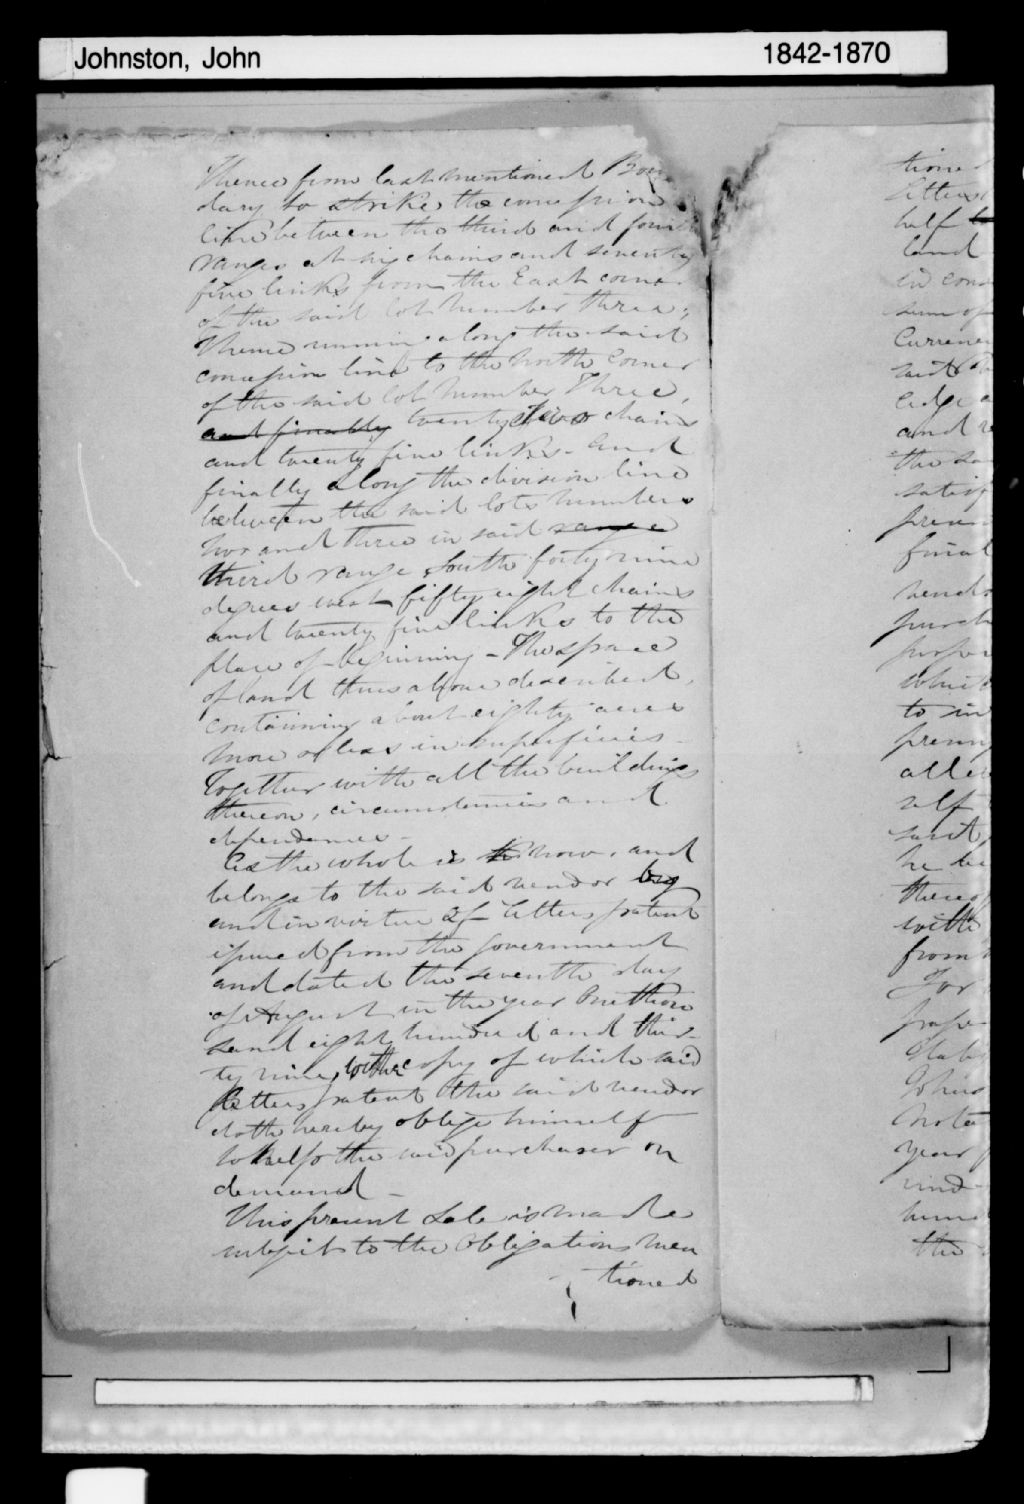 Johnston, John
1842-1870
Thence from last mentioned Boun
dary to strike the concession
line between the third and fourth
ranges at six chains and seventy
five links from the East corner
of the said lot number three;
Thence running along the said
concession line to the North Corner
of the said lot number Three,
and finally twenty two chains
and twenty five links - and
finally along the division line
between the said lots numbers
two and three in said range
third range South forty nine
degrees west fifty eight chains
and twenty five links to the
place of beginning - The space
of land thus above described,
containing about eighty acres
more or less in superficies -
Together with all the buildings
thereon, circumstances and
dependencies -
As the whole is now, and
belongs to the said vendor by
and in virtue of Letters patent
issued from the Government
and dated the seventh day
of August in the year One thou
sand eight hundred and thir-
ty nine, copy of which said
Letters patent the said vendor
doth hereby oblige himself
to the said purchaser on
demand -
This present Sale is made
subject to the Obligations men
tioned
tione
letters
half
land
in con
sum of
Currenc
said
ledge
and
the sa
satisf
presen
final
vendo
purch
proper
which
to
prem
all
self
said
he
thereof
with
from
For
Johns
Nota
year
und
hun
the